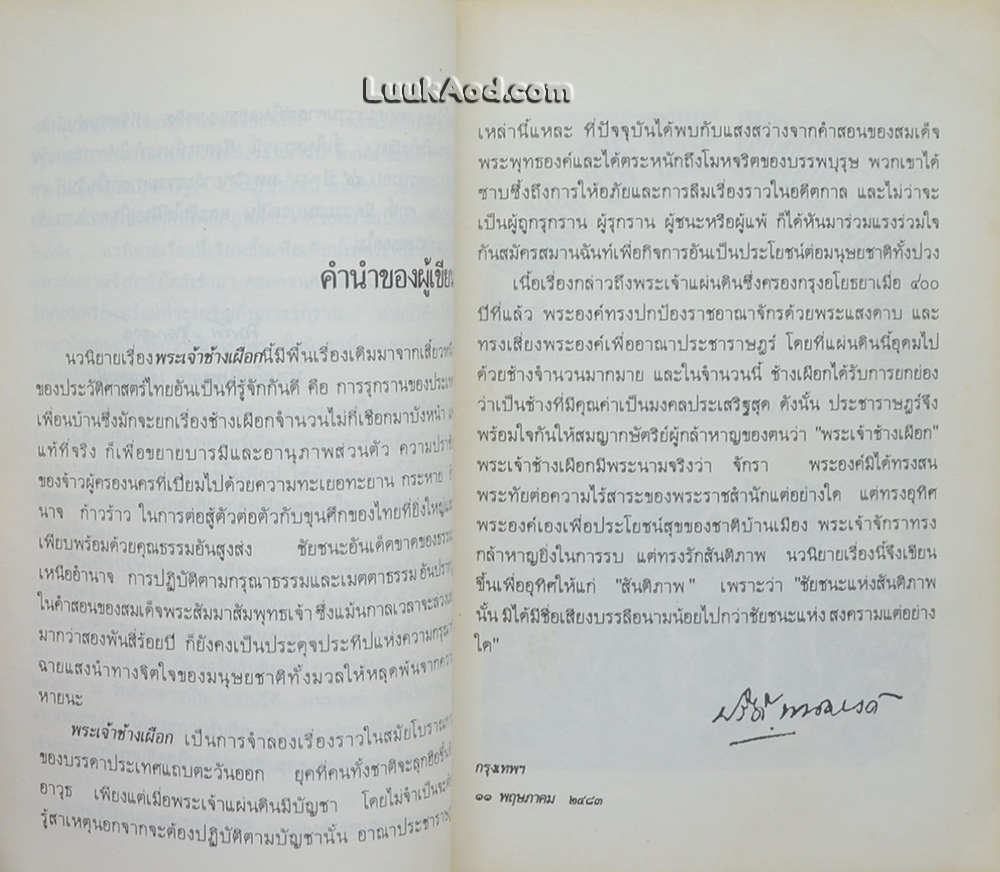 LuukAod.com
คำนำของผู้เขียน
นวนิยายเรื่องพระเจ้าช้างเผือกนี้มีพื้นเรื่องเดิมมาจากเสี้ยว
ของประวัติศาสตร์ไทยอันเป็นที่รู้จักกันดี คือ การรุกรานของ
เพื่อนบ้านซึ่งมักจะยกเรื่องช้างเผือกจำนวนไม่กี่เชือกมาบังหน้า
แท้ที่จริง ก็เพื่อขยายบารมีและอานุภาพส่วนตัว ความ
ของจ้าวผู้ครองนครที่เปี่ยมไปด้วยความทะเยอทะยาน กระหาย
นาจ ก้าวร้าว ในการต่อสู้ตัวต่อตัวกับขุนศึกของไทยที่ยิ่งใหญ่
เพียบพร้อมด้วยคุณธรรมอันสูงส่ง ชัยชนะอันเด็ดขาดของ
เหนืออำนาจ การปฏิบัติตามกรุณาธรรมและเมตตาธรรม
ในคำสอนของสมเด็จพระสัมมาสัมพุทธเจ้า ซึ่งแม้นกาลเวลาจะ
มากว่าสองพันสี่ร้อยปี ก็ยังคงเป็นประดุจประทีปแห่งความ
ฉายแสงนำทางจิตใจของมนุษยชาติทั้งมวลให้หลุดพ้นจาก
หายนะ
พระเจ้าช้างเผือก เป็นการจำลองเรื่องราวในสมัย
ของบรรดาประเทศแถบตะวันออก ยุคที่คนทั้งชาติจะลุกฮือ
อาวุธ เพียงแต่เมื่อพระเจ้าแผ่นดินมีบัญชา โดยไม่จำเป็น
รู้สาเหตุนอกจากจะต้องปฏิบัติตามบัญชานั้น
เหล่านี้แหละ ที่ปัจจุบันได้พบกับแสงสว่างจากคำสอนของสมเด็จ
พระพุทธองค์และได้ตระหนักถึงโมหจริตของบรรพบุรุษ พวกเขาได้
ซาบซึ้งถึงการให้อภัยและการลืมเรื่องราวในอดีตกาล และไม่ว่าจะ
เป็นผู้ถูกรุกราน ผู้รุกราน ผู้ชนะหรือผู้แพ้ ก็ได้หันมาร่วมแรงร่วมใจ
กันสมัครสมานฉันท์เพื่อกิจการอันเป็นประโยชน์ต่อมนุษยชาติทั้งปวง
เนื้อเรื่องกล่าวถึงพระเจ้าแผ่นดินซึ่งครองกรุงอโยธยาเมื่อ ๔๐๐
ปีที่แล้ว พระองค์ทรงปกป้องราชอาณาจักรด้วยพระแสงดาบ และ
ทรงเสี่ยงพระองค์เพื่ออาณาประชาราษฎร์ โดยที่แผ่นดินนี้อุดมไป
ด้วยช้างจำนวนมากมาย และในจำนวนนี้ ช้างเผือกได้รับการยกย่อง
ว่าเป็นช้างที่มีคุณค่าเป็นมงคลประเสริฐสุด ดังนั้น ประชาราษฎร์จึง
พร้อมใจกันให้สมญากษัตริย์ผู้กล้าหาญของตนว่า "พระเจ้าช้างเผือก"
พระเจ้าช้างเผือกมีพระนามจริงว่า จักรา พระองค์มิได้ทรงสน
พระทัยต่อความไร้สาระของพระราชสำนักแต่อย่างใด แต่ทรงอุทิศ
พระองค์เองเพื่อประโยชน์สุขของชาติบ้านเมือง พระเจ้าจักราทรง
กล้าหาญยิ่งในการรบ แต่ทรงรักสันติภาพ นวนิยายเรื่องนี้จึงเขียน
ขึ้นเพื่ออุทิศให้แก่ "สันติภาพ" เพราะว่า "ชัยชนะแห่งสันติภาพ
นั้น มิได้มีชื่อเสียงบรรลือนามน้อยไปกว่าชัยชนะแห่ง สงครามแต่อย่าง
ใด"
ปรีดี พนมยงค์
กรุงเทพฯ
๑๑ พฤษภาคม ๒๔๘๓